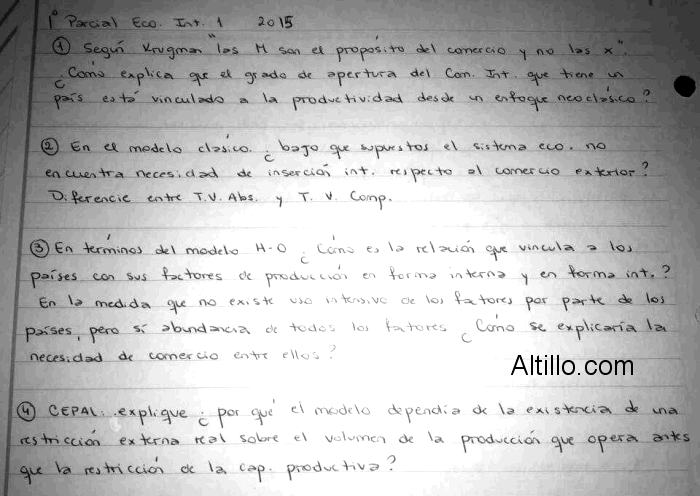 1° Parcial Eco. Int. 1 2015
① Según Krugman "las M son el propósito del comercio y no las x".
¿Cómo explica que el grado de apertura del Com. Int. que tiene un
país está vinculado a la productividad desde un enfoque neoclásico?
② En el modelo clásico. ¿bajo que supuestos el sistema eco. no
encuentra necesidad de inserción int. respecto al comercio exterior?
Diferencie entre T.V. Abs. y T. V. Comp.
③ En términos del modelo H-O ¿Cómo es la relación que vincula a los
países con sus factores de producción en forma interna y en forma int.?
En la medida que no existe uso intensivo de los factores por parte de los
países, pero sí abundancia de todos los factores ¿Cómo se explicaría la
necesidad de comercio entre ellos?
Altillo.com
④ CEPAL: explique ¿por qué el modelo dependía de la existencia de una
restricción externa real sobre el volumen de la producción que opera antes
que la restricción de la cap. productiva?